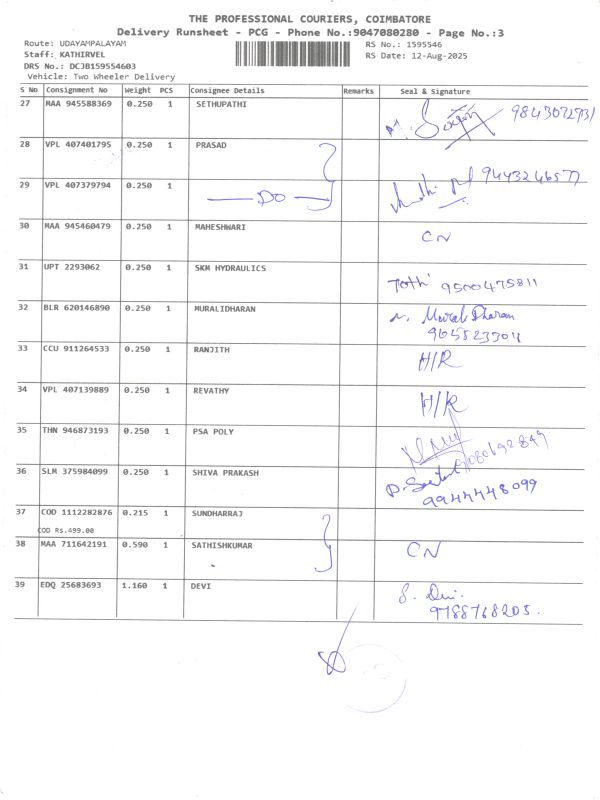 THE PROFESSIONAL COURIERS, COIMBATORE
Delivery Runsheet - PCG - Phone No.:9047080280 - Page No.:3
Route: UDAYAMPALAYAM
Staff: KATHIRVEL
DRS No.: DCJB159554603
Vehicle: Two Wheeler Delivery
RS No.: 1595546
RS Date: 12-Aug-2025
S No Consignment No Weight PCS Consignee Details Remarks Seal & Signature
27 MAA 945588369 0.250 1 SETHUPATHI
28 VPL 407401795 0.250 1 PRASAD
29 VPL 407379794 0.250 1 DO 9443246577
30 MAA 945460479 0.250 1 MAHESHWARI CN
31 UPT 2293062 0.250 1 SKM HYDRAULICS 9500475811
32 BLR 620146890 0.250 1 MURALIDHARAN
33 CCU 911264533 0.250 1 RANJITH H/R
34 VPL 407139889 0.250 1 REVATHY H/R
35 THN 946873193 0.250 1 PSA POLY
36 SLM 375984099 0.250 1 SHIVA PRAKASH 9944448099
37 COD 1112282876 0.215 1 SUNDHARRAJ
COD Rs.499.00
38 MAA 711642191 0.590 1 SATHISHKUMAR CN
39 EDQ 25683693 1.160 1 DEVI S. Devi.
9788768205.